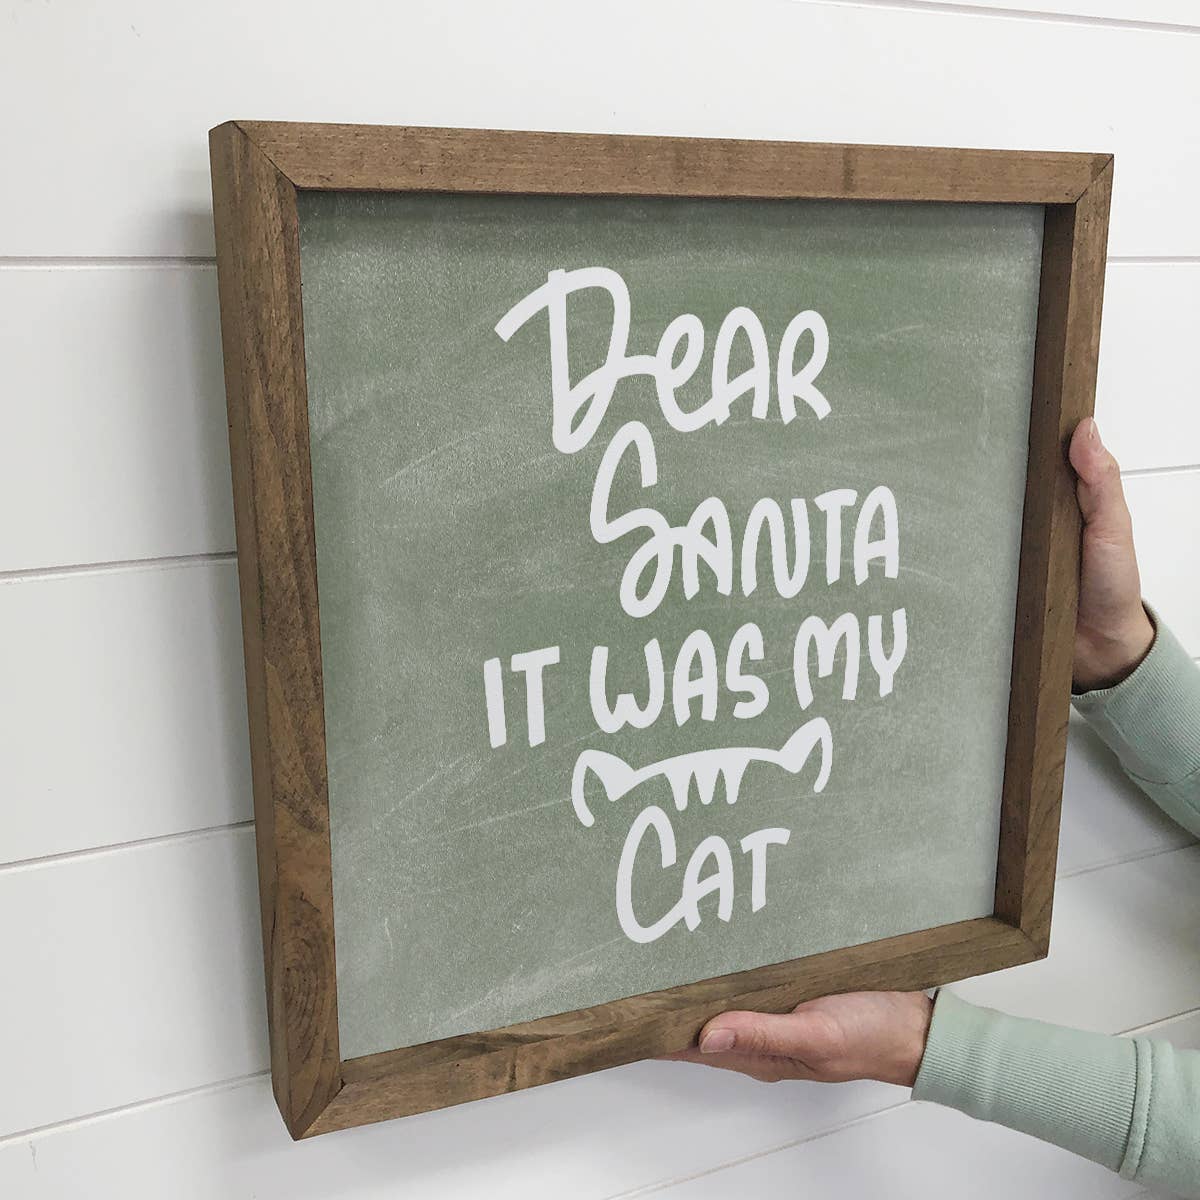 Dear
Santa
IT WAS MY
Cat